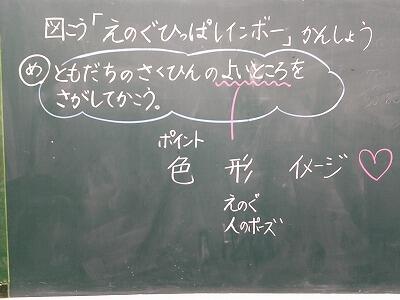 図こう「えのぐひっぱレインボー」かんしょう
め ともだちのさくひんのよいところを
さがしてかこう。
ポイント
色 形 イメージ
えのぐ
人のポーズ